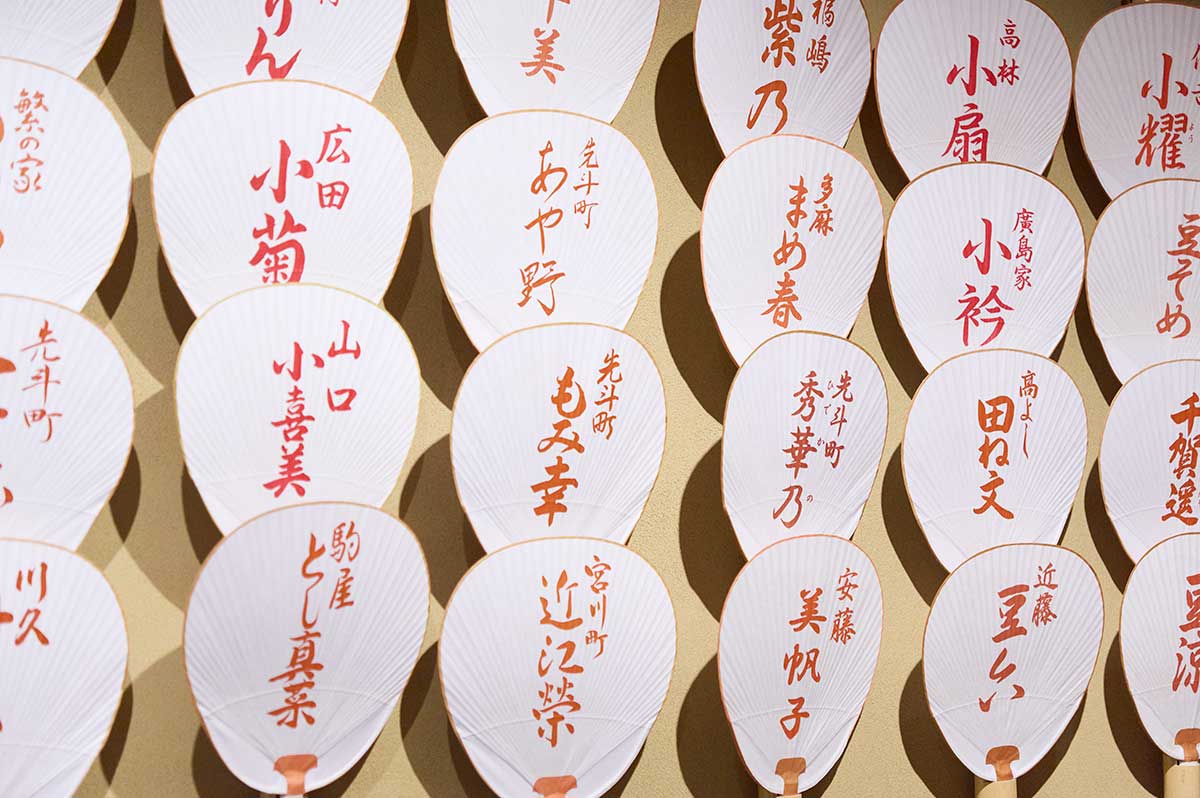 りん
美
福嶋
紫乃
高林
小扇
小耀
よう
繁の家
広田
小菊
先斗町
あや野
多麻
まめ春
廣島家
小衿
豆そめ
先斗町
山口
小喜美
先斗町
もみ幸
先斗町
秀華乃
ひでかの
高よし
田ね文
千賀遥
川久
駒屋
とし真菜
宮川町
近江榮
安藤
美帆子
近藤
豆六
豆涼